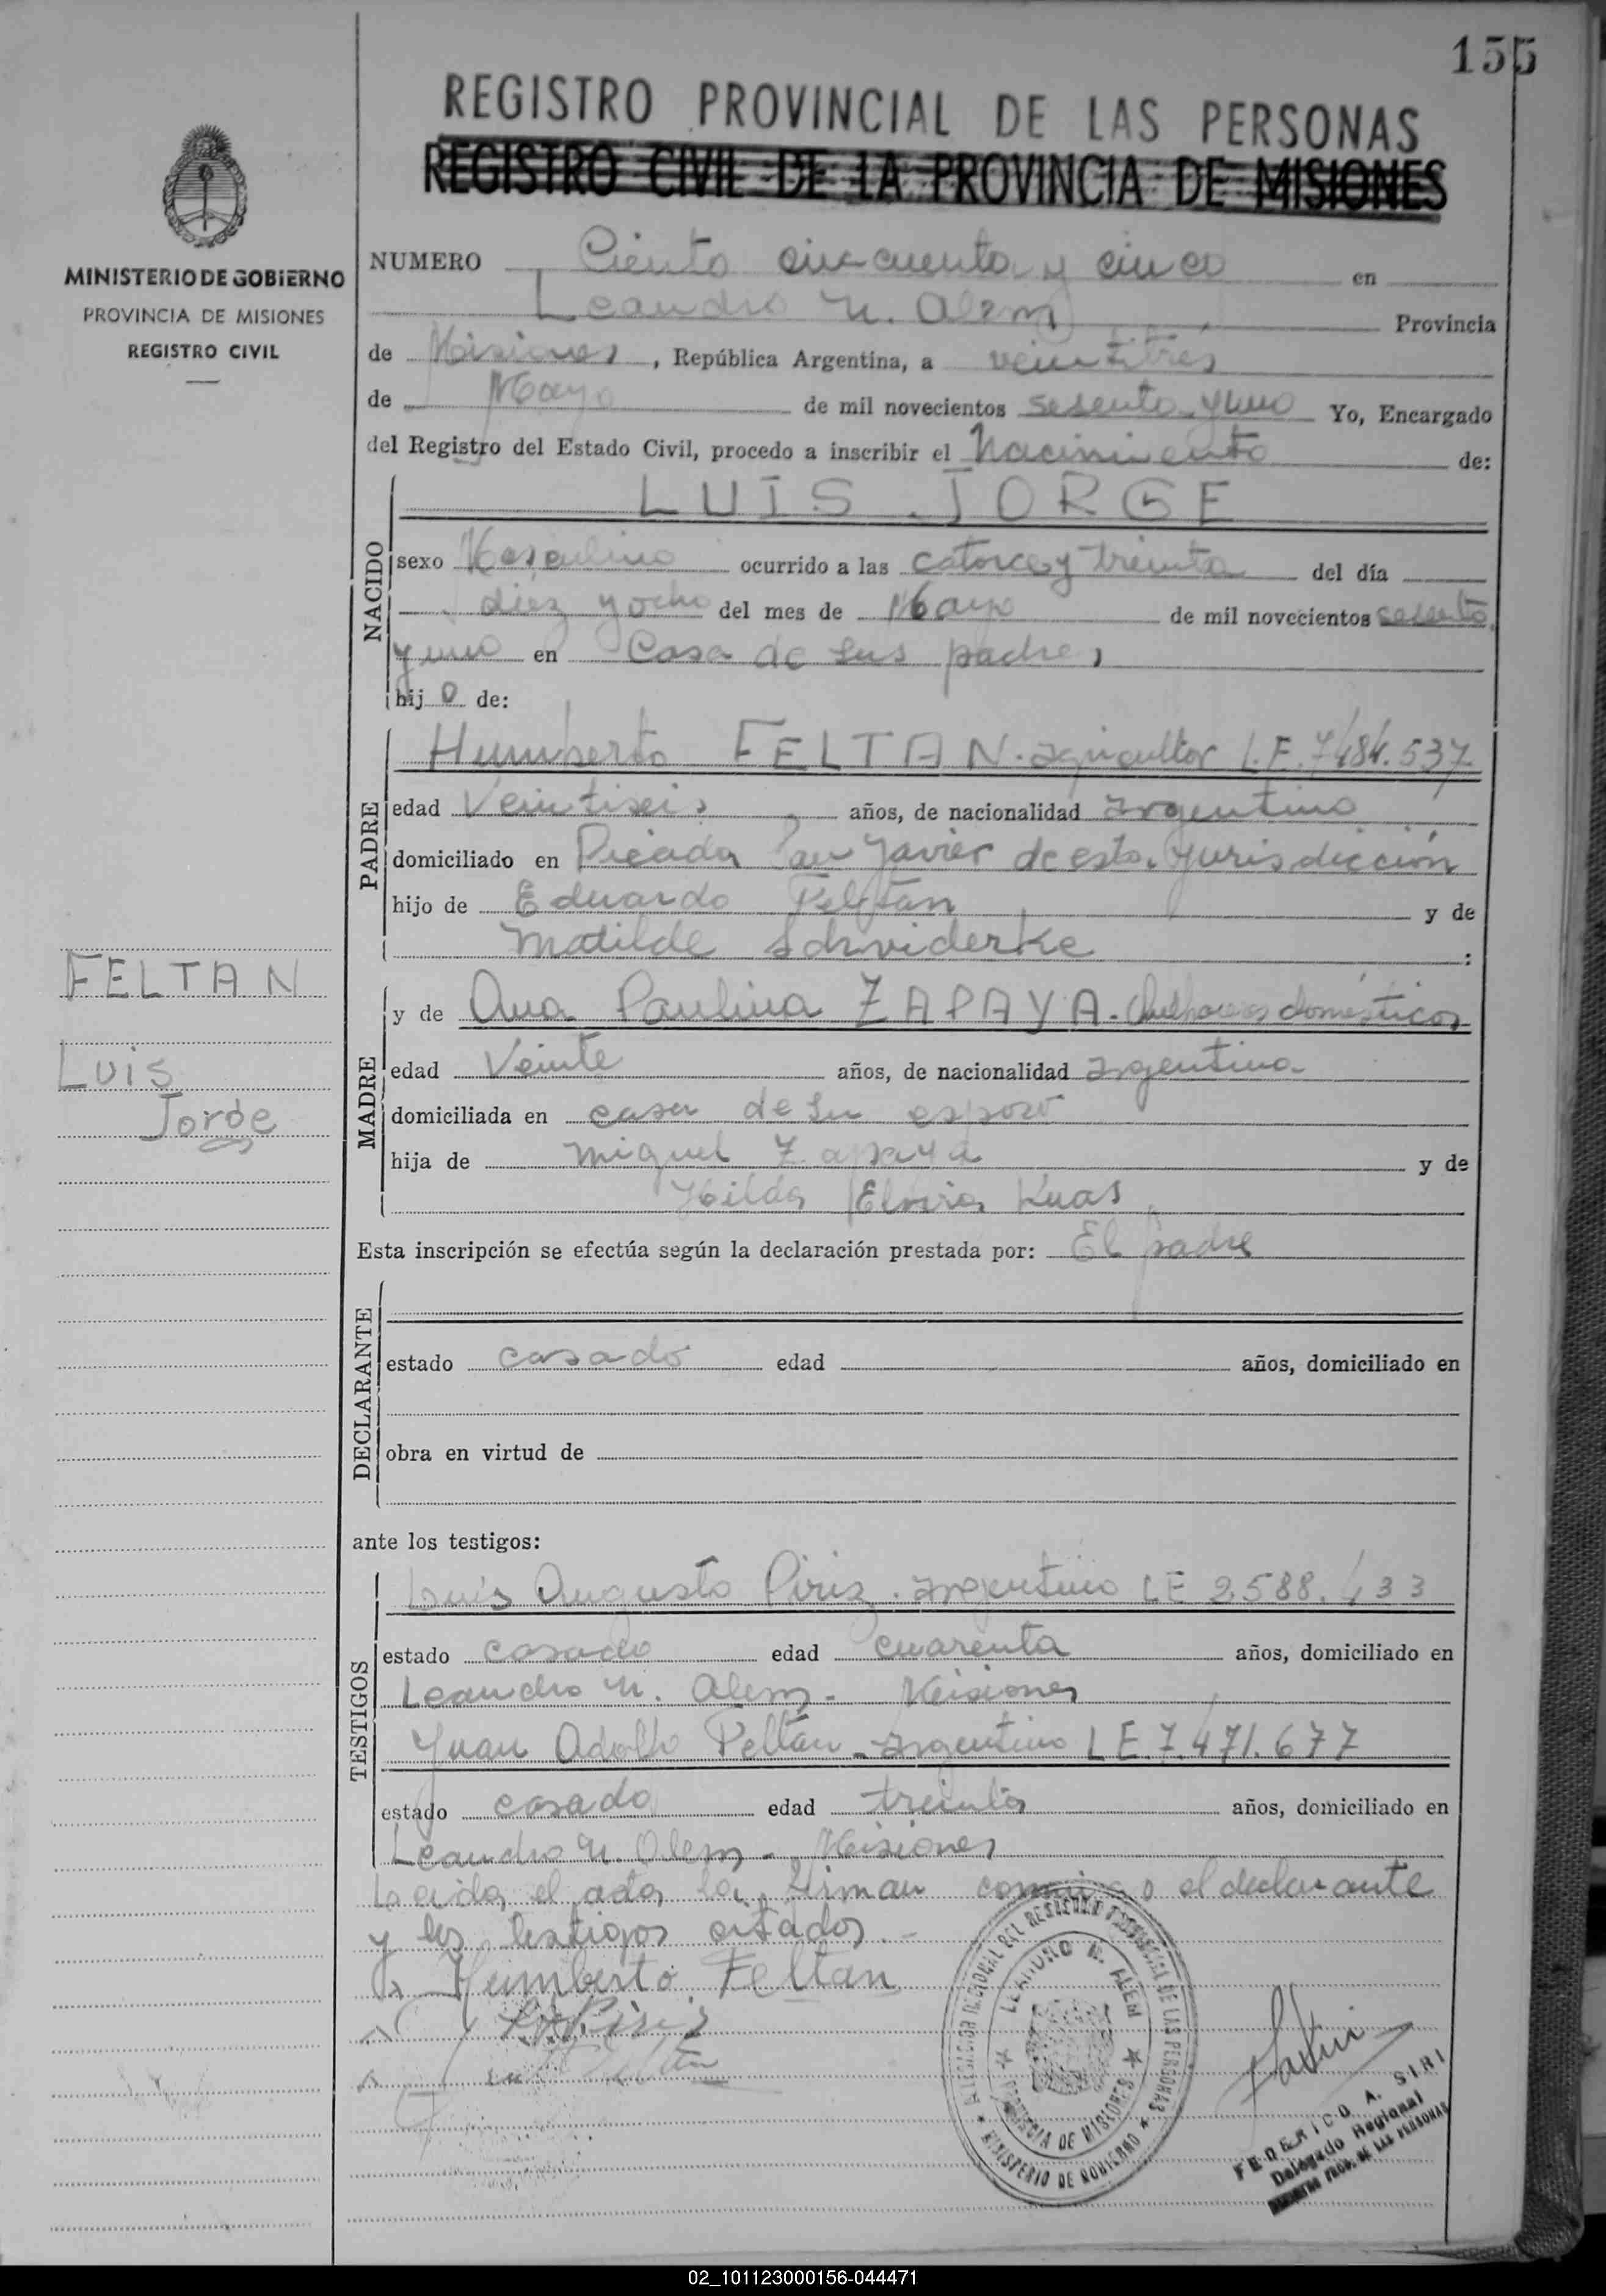 155
REGISTRO PROVINCIAL DE LAS PERSONAS
REGISTRO CIVIL DE LA PROVINCIA DE MISIONES
MINISTERIO DE GOBIERNO
PROVINCIA DE MISIONES
REGISTRO CIVIL
NUMERO Ciento cincuenta y cinco en
Leandro N. Alem Provincia
de Misiones, República Argentina, a veintitres
de Mayo de mil novecientos sesenta y uno Yo, Encargado
del Registro del Estado Civil, procedo a inscribir el Nacimiento de:
NACIDO
LUIS JORGE
sexo Masculino ocurrido a las catorce y treinta del día
diez y ocho del mes de Mayo de mil novecientos sesenta
y uno en Casa de sus padres
hijo de:
PADRE
Humberto FELTAN. agricultor L.E. 7.484.537
edad Veintiseis años, de nacionalidad argentino
domiciliado en Picada San Javier de esta Jurisdicción
hijo de Eduardo Feltan y de
Matilde Schviderke :
FELTAN
Luis
Jorge
MADRE
y de Ana Paulina ZAPAYA. Quehaceres domésticos
edad Veinte años, de nacionalidad argentina
domiciliada en casa de su esposo
hija de Miguel Zapaya y de
Hilda Elvira Kuas
Esta inscripción se efectúa según la declaración prestada por: El padre
DECLARANTE
estado casado edad años, domiciliado en
obra en virtud de
ante los testigos:
TESTIGOS
Luis Augusto Piriz. argentino LE 2.588.433
estado casado edad cuarenta años, domiciliado en
Leandro N. Alem - Misiones
Juan Adolfo Feltan - argentino L E. 7.471.677
estado casado edad treinta años, domiciliado en
Leandro N. Alem - Misiones
Leida el acta, la firman conmigo el declarante
y los testigos citados.-
Humberto Feltan
DELEGACION REGIONAL DEL REGISTRO PROVINCIAL DE LAS PERSONAS
LEANDRO N. ALEM
PROVINCIA DE MISIONES
MINISTERIO DE GOBIERNO
FEDERICO A. SIRI
Delegado Regional
REGISTRO PROV. DE LAS PERSONAS
02_101123000156-044471